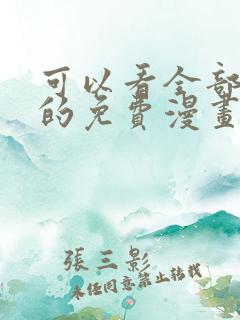 可以看全部
的免費漫畫
張三影
未經同意禁止转载